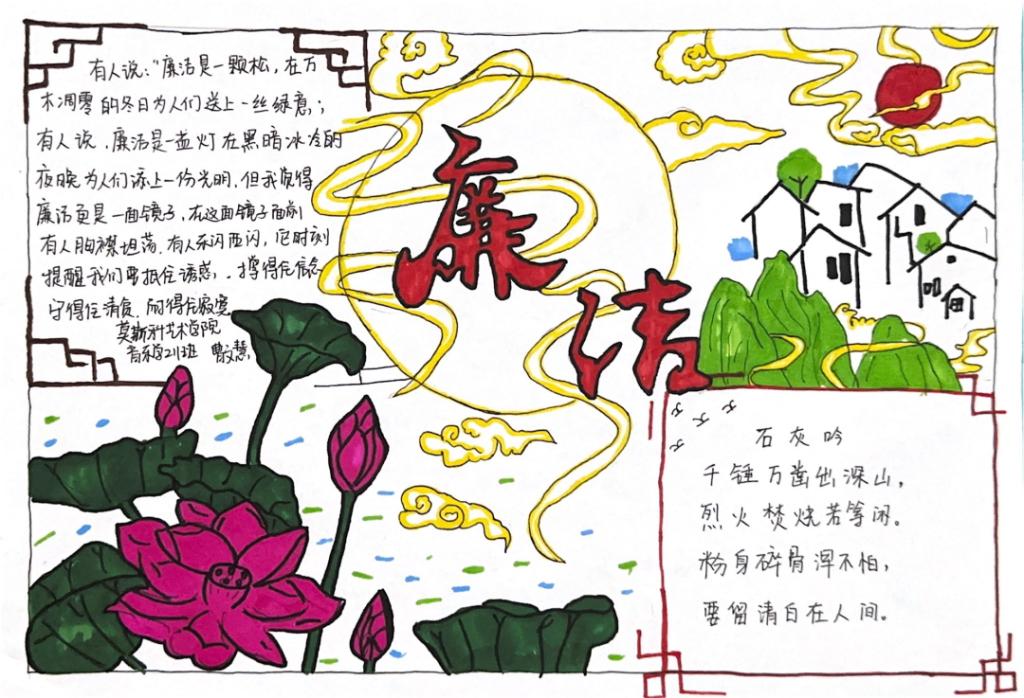 有人说："廉洁是一颗松，在万
木凋零的冬日为人们送上一丝绿意；
有人说，廉洁是一盏灯在黑暗冰冷的
夜晚为人们添上一份光明，但我觉得
廉洁更是一面镜子，在这面镜子面前
有人胸襟坦荡，有人东闪西闪，它时刻
提醒我们要抵住诱惑，撑得住信念
守得住清贫，耐得住寂寞
莫斯科艺术学院
音乐学211班 曹文慧
廉洁
石灰吟
千锤万凿出深山，
烈火焚烧若等闲。
粉身碎骨浑不怕，
要留清白在人间。